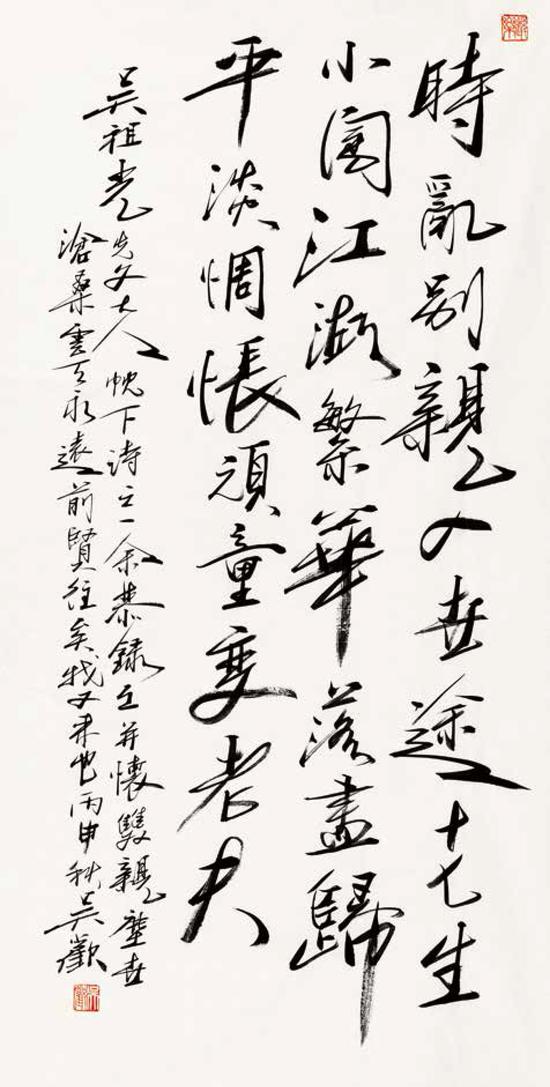 時亂別親入世途十七生
小闖江湖繁華落盡歸
平淡惆悵頑童變老夫
吳祖光先父大人枕下诗之一余恭録之并懷雙親塵世
滄桑雲天永遠前賢往矣我又来也丙申秋吴歡